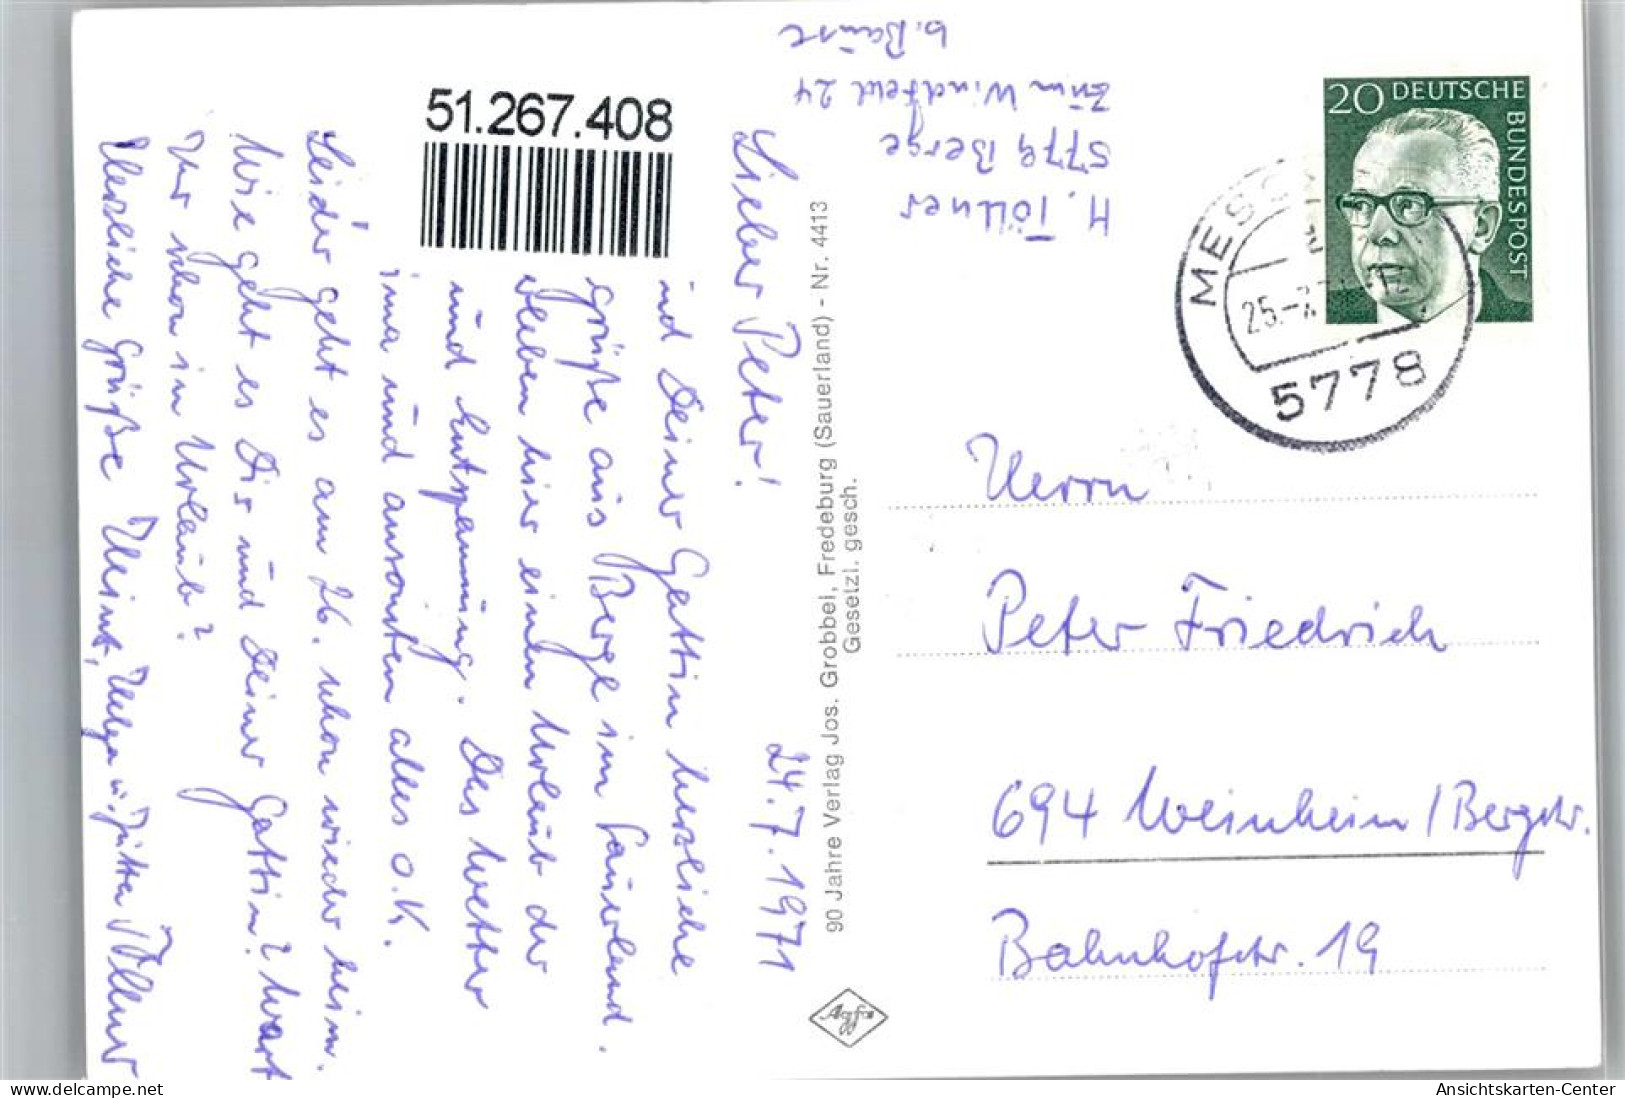 24.7.1971
Lieber Peter!
Dir und Deiner Gattin herzliche
Grüße aus Berge im Sauerland.
Wir erleben hier einen Urlaub der
Ruhe und Entspannung. Das Wetter
ist prima und ansonsten alles o.K.
Leider geht es am 26. schon wieder heim.
Wie geht es Dir und Deiner Gattin? Wart
Ihr schon in Urlaub?
Herzliche Grüße Heinz, Helga u. Jutta Töllner
51.267.408
90 Jahre Verlag Jos. Grobbel, Fredeburg (Sauerland) - Nr. 4413
Gesetzl. gesch.
Agfa
H. Töllner
5779 Berge
Zum Windfeld 24
b. Bause
20 DEUTSCHE BUNDESPOST
5778
Herrn
Peter Friedrich
694 Weinheim/Bergstr.
Bahnhofstr. 19
delcampe.net
Ansichtskarten-Center